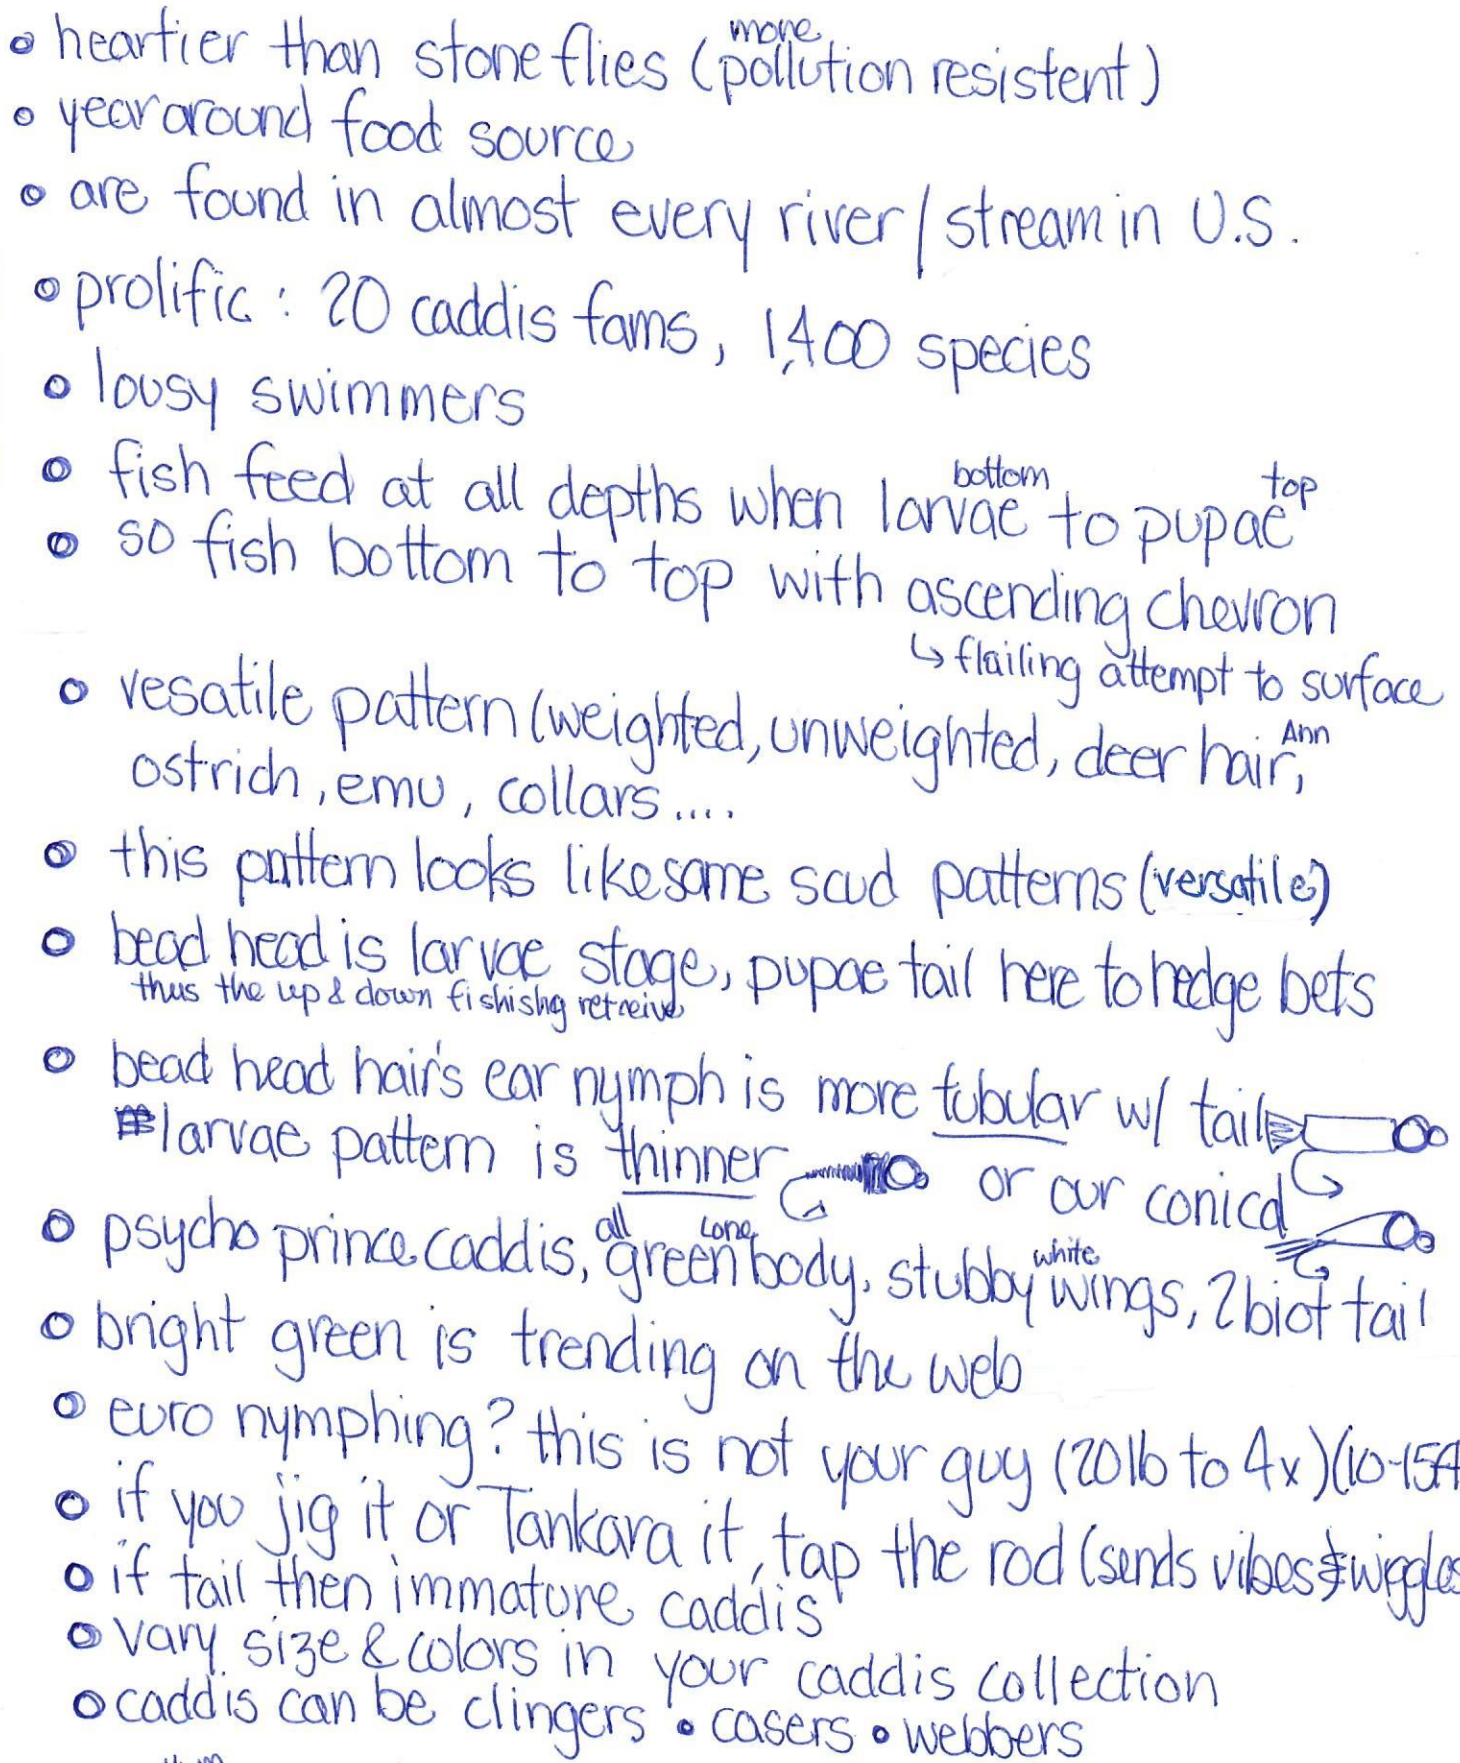 • heartier than stoneflies (more pollution resistent)
• year around food source
• are found in almost every river/stream in U.S.
• prolific: 20 caddis fams, 1,400 species
• lousy swimmers
• fish feed at all depths when larvae bottom to pupae top
• so fish bottom to top with ascending chevron
↳ flailing attempt to surface
• vesatile pattern (weighted, unweighted, deer hair, Ann
ostrich, emu, collars....
• this pattern looks like some scud patterns (versatile)
• bead head is larvae stage, pupae tail here to hedge bets
thus the up & down fishishg retreive
• bead head hair's ear nymph is more tubular w/ tail
larvae pattern is thinner or our conical
• psycho prince caddis, all green body, stubby white wings, 2 biot tail
• bright green is trending on the web
• euro nymphing? this is not your guy (20lb to 4x)(10-15
• if you jig it or Tankara it, tap the rod (sends vibes & wiggles
• if tail then immature caddis
• vary size & colors in your caddis collection
• caddis can be clingers • casers • webbers